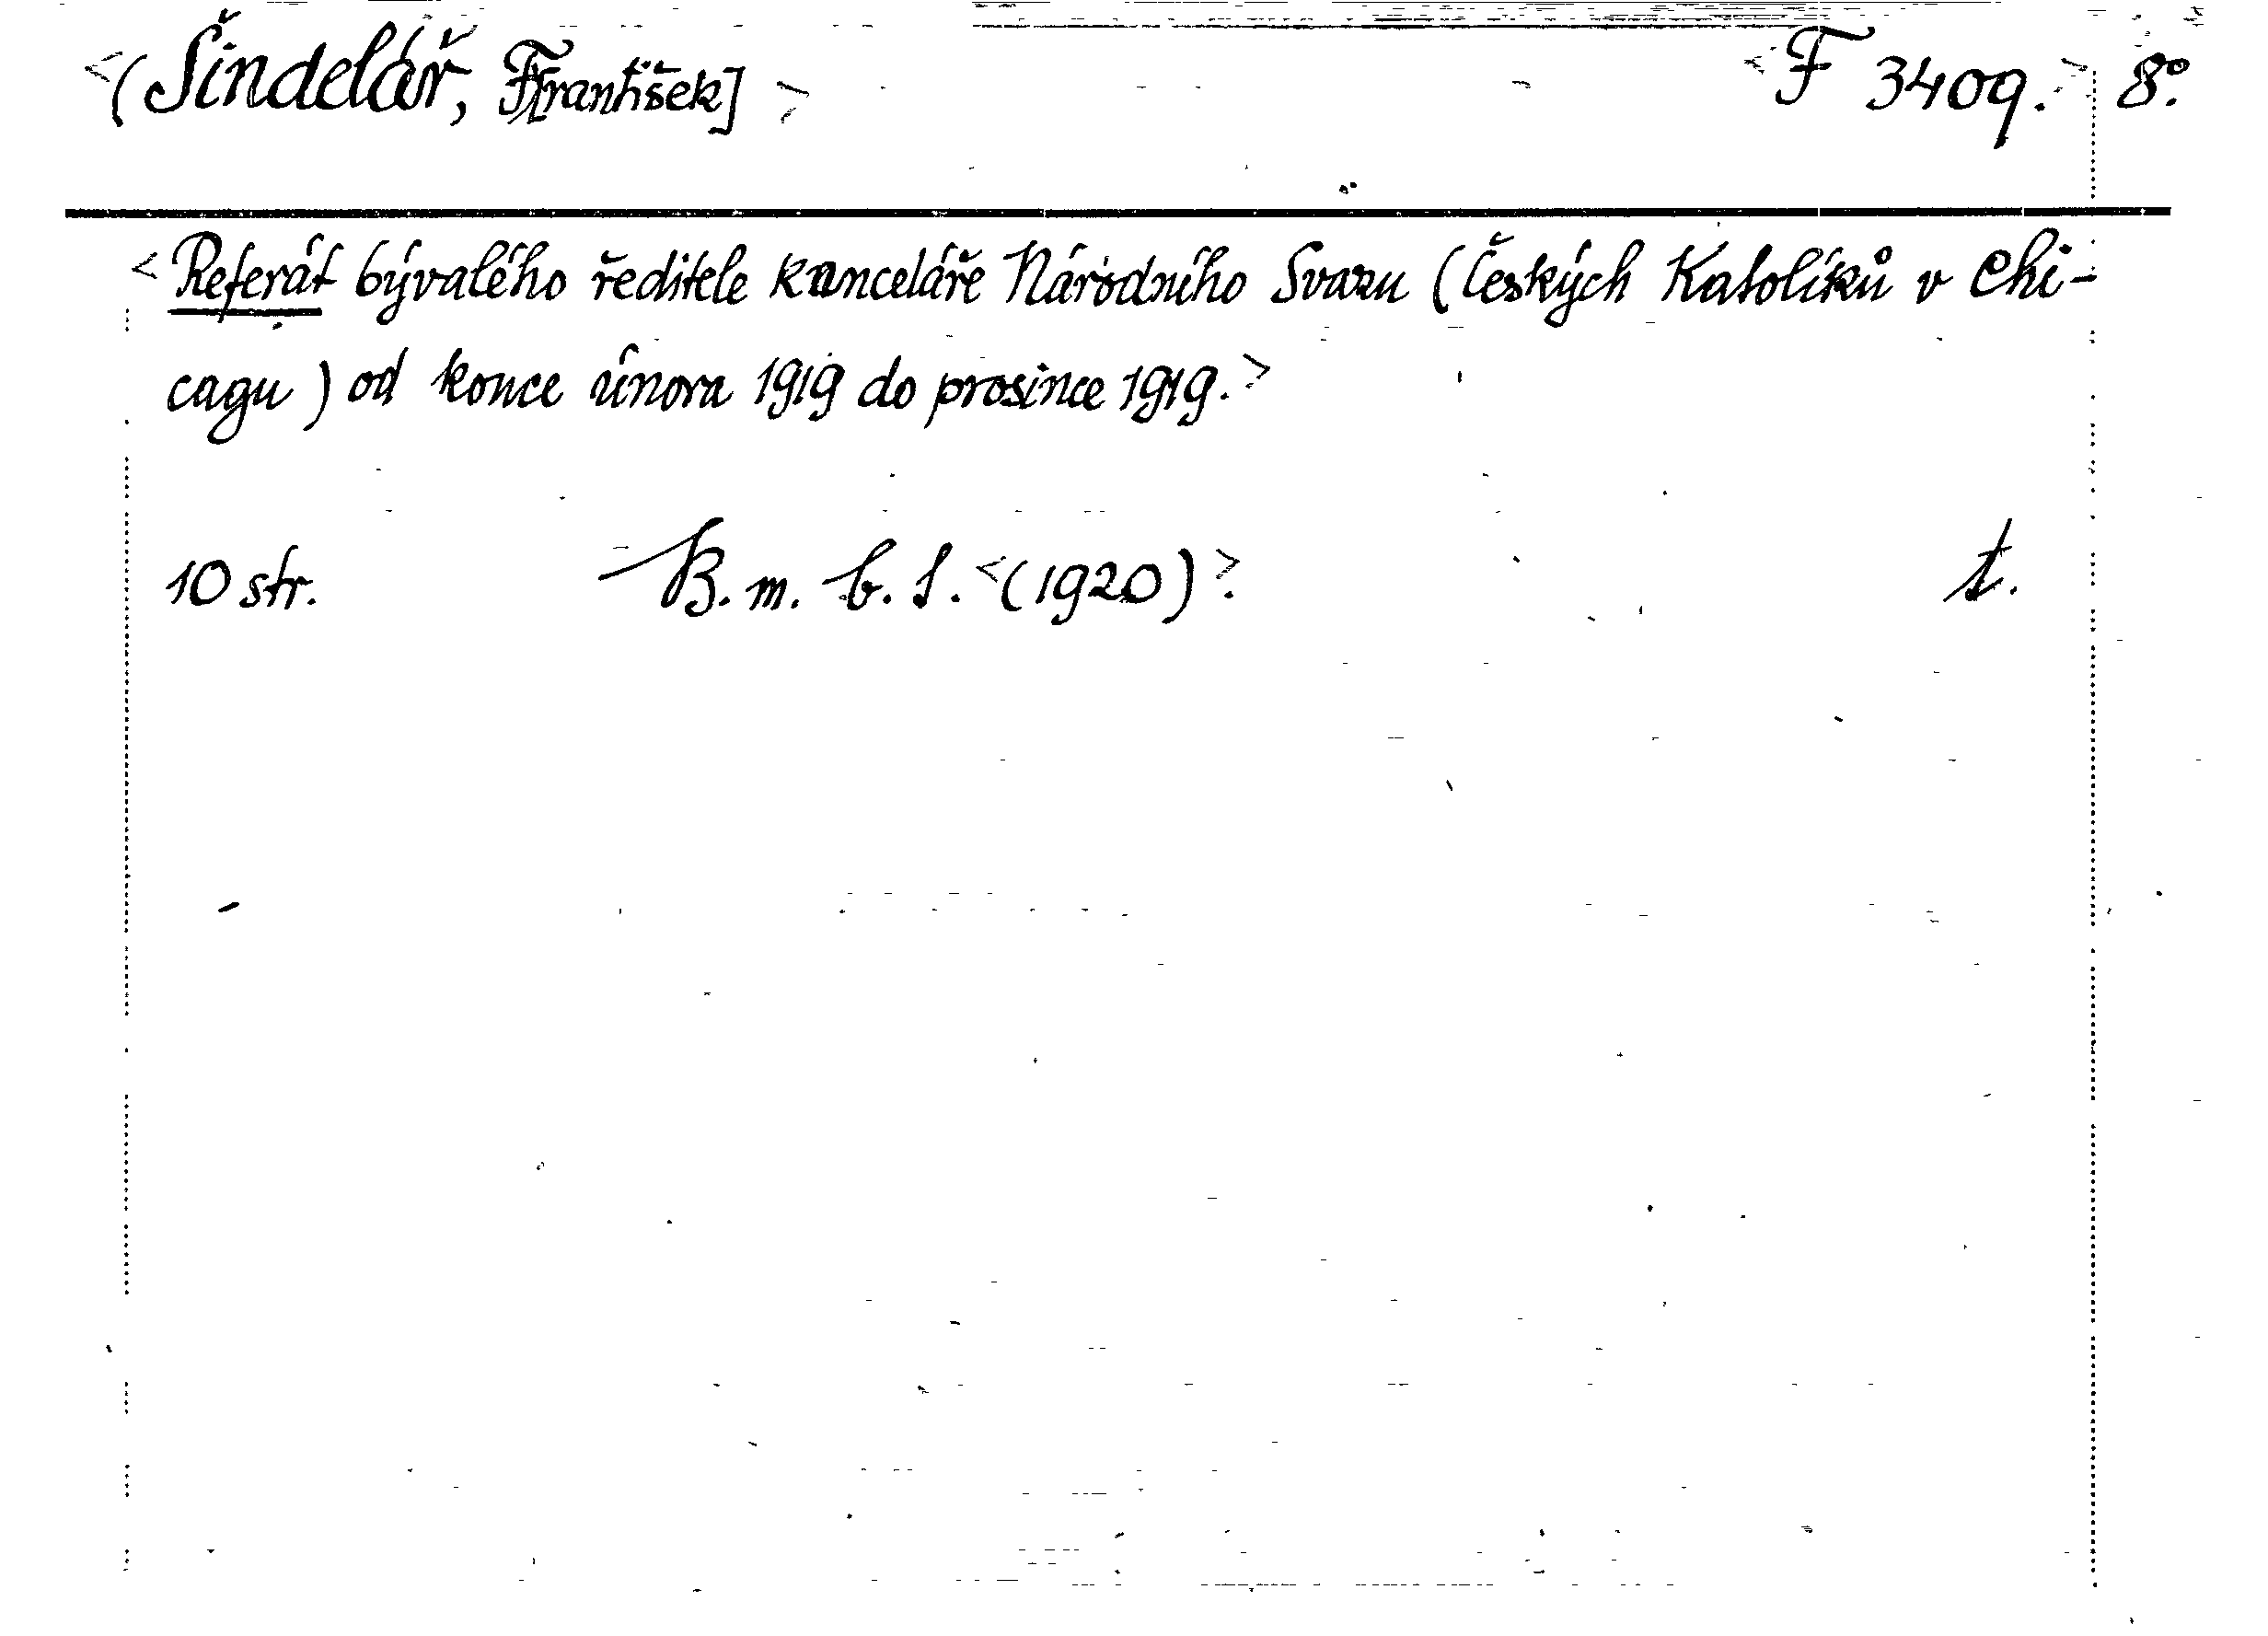 <(Šindelář, F[rantišek]> <F 3409.> 8°.
<Referát bývalého ředitele kanceláře Národního Svazu (Českých Katolíků v Chi-
cagu) od konce února 1919 do prosince 1919.>
10 str. B. m. b. l. <(1920)>. t.